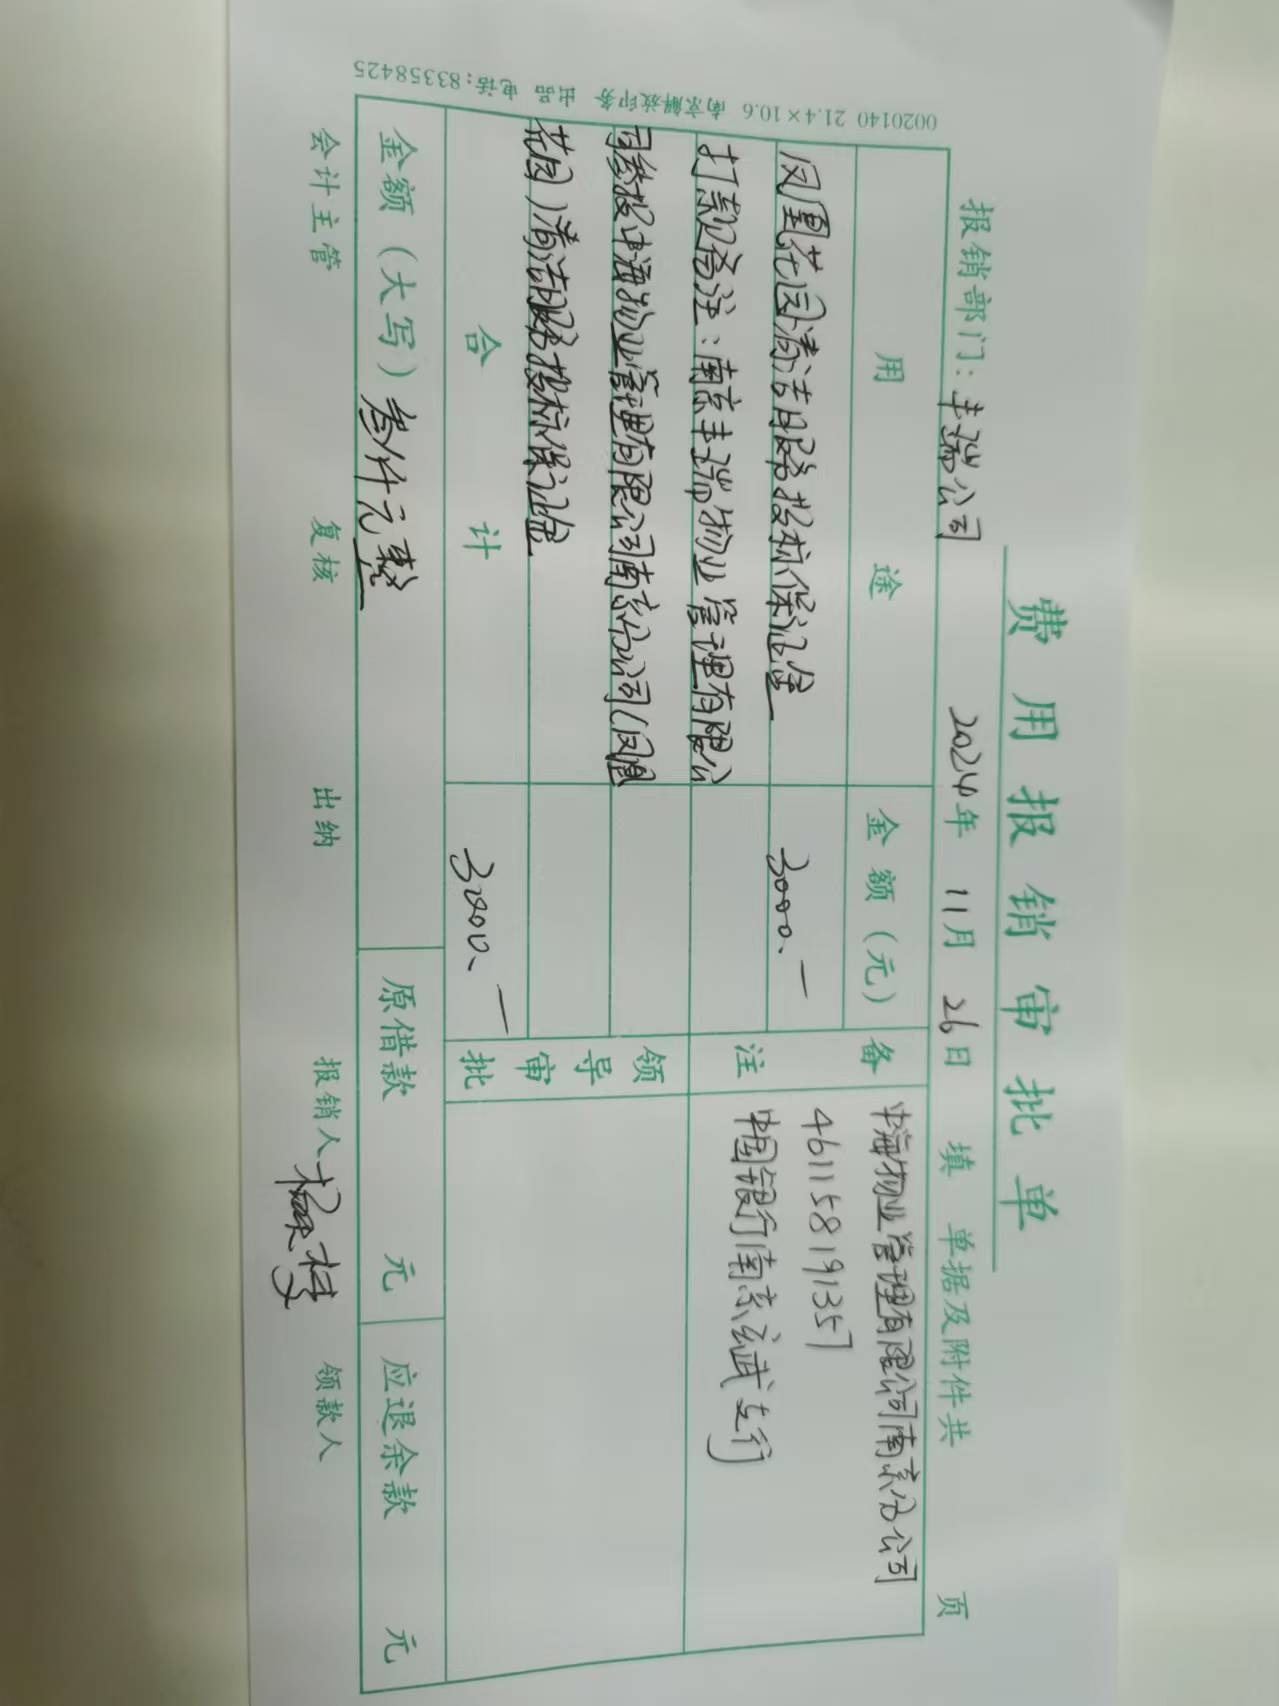 费用报销审批单
报销部门：丰瑞公司 2024年 11月 26日 填 单据及附件共 页
用途 金额（元） 备注 中海物业管理有限公司南京分公司
凤凰花园清洁服务投标保证金 3000.— 461158191357
打款备注：南京丰瑞物业管理有限公 中国银行南京玄武支行
司参投中海物业管理有限公司南京分公司（凤凰 领导审批
花园）清洁服务投标保证金
合计 3000.—
金额（大写）叁仟元整 原借款 元 应退余款 元
会计主管 复核 出纳 报销人 领款人
0020140 21.4×10.6 南京解放印务 出品 电话：83358425